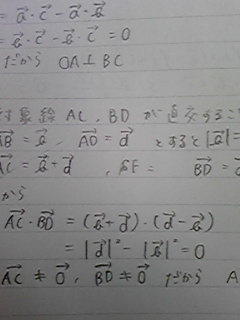 = a⃗・c⃗ − a⃗・b⃗
= b⃗・c⃗ − b⃗・c⃗ = 0
だから OA⊥BC
対角線 AC, BD が直交するこ
AB⃗ = b⃗, AD⃗ = d⃗ とすると |b⃗| =
AC⃗ = b⃗ + d⃗, BD⃗ = d⃗
から
AC⃗・BD⃗ = (b⃗ + d⃗)・(d⃗ − b⃗)
= |d⃗|² − |b⃗|² = 0
AC⃗ ≠ 0⃗, BD⃗ ≠ 0⃗ だから A